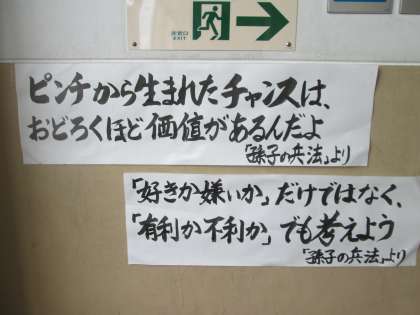 非常口
EXIT
ピンチから生まれたチャンスは、
おどろくほど価値があるんだよ
「孫子の兵法」より
「好きか嫌いか」だけではなく、
「有利か不利か」でも考えよう
「孫子の兵法」より